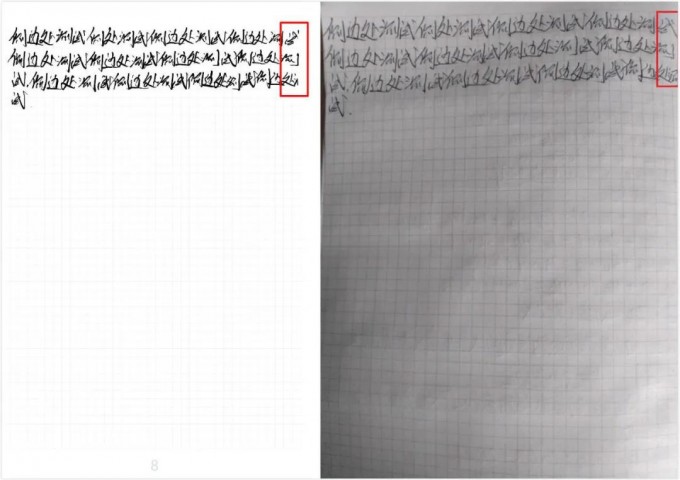 侧边处测试侧处测试侧边处测试侧边处测试
侧边处测试侧边处测试侧边处测试侧边处测
试.侧边处测试侧边处测试侧边处测试侧边处测
试
8
侧边处测试侧处测试侧边处测试侧边处测试
侧边处测试侧边处测试侧边处测试侧边处测
试.侧边处测试侧边处测试侧边处测试侧边处测
试.